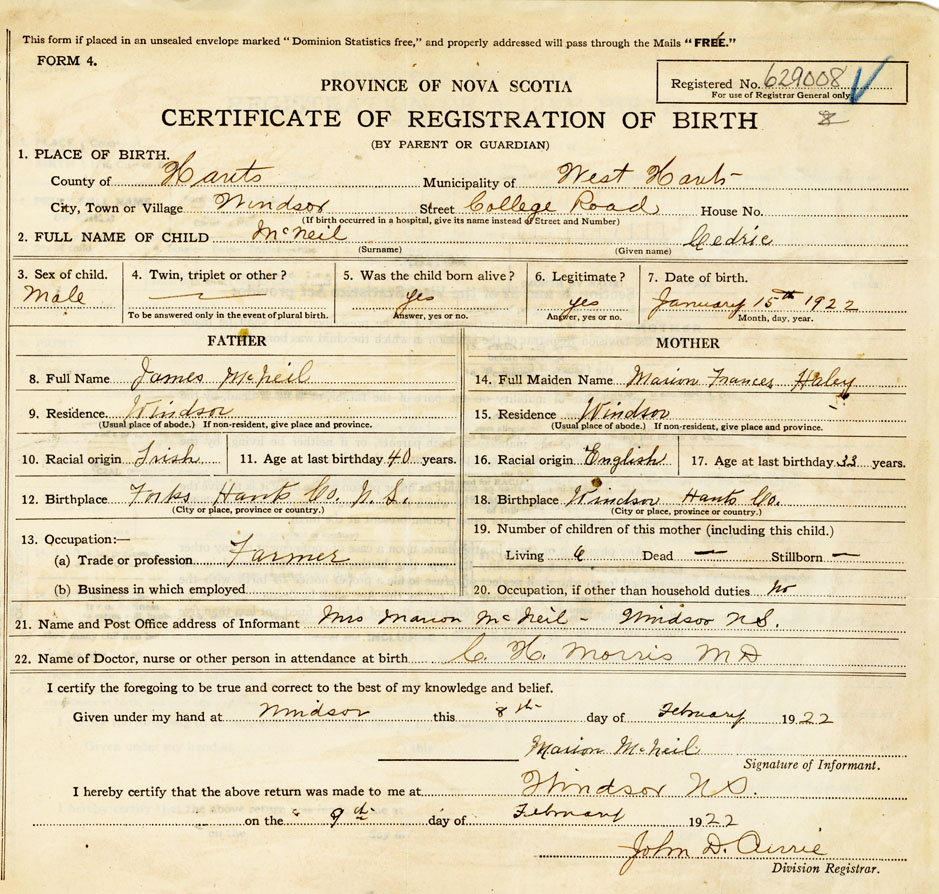 This form if placed in an unsealed envelope marked "Dominion Statistics free," and properly addressed will pass through the Mails "FREE."
FORM 4.
Registered No. 629008
For use of Registrar General only
PROVINCE OF NOVA SCOTIA
CERTIFICATE OF REGISTRATION OF BIRTH
(BY PARENT OR GUARDIAN)
1. PLACE OF BIRTH.
County of Hants Municipality of West Hants
City, Town or Village Windsor Street College Road House No.
(If birth occurred in a hospital, give its name instead of Street and Number)
2. FULL NAME OF CHILD McNeil Cedric
(Surname) (Given name)
3. Sex of child. 4. Twin, triplet or other? 5. Was the child born alive? 6. Legitimate? 7. Date of birth.
Male — yes yes January 15th 1922
To be answered only in the event of plural birth. Answer, yes or no. Answer, yes or no. Month, day, year.
FATHER MOTHER
8. Full Name James McNeil 14. Full Maiden Name Marion Frances Haley
9. Residence. Windsor 15. Residence Windsor
(Usual place of abode.) If non-resident, give place and province. (Usual place of abode.) If non-resident, give place and province.
10. Racial origin Irish 11. Age at last birthday 40 years. 16. Racial origin English 17. Age at last birthday 33 years.
12. Birthplace Forks Hants Co. N.S. 18. Birthplace Windsor Hants Co.
(City or place, province or country.) (City or place, province or country.)
13. Occupation:— 19. Number of children of this mother (including this child.)
(a) Trade or profession Farmer Living 6 Dead — Stillborn —
(b) Business in which employed 20. Occupation, if other than household duties. No
21. Name and Post Office address of Informant Mrs Marion McNeil - Windsor N.S.
22. Name of Doctor, nurse or other person in attendance at birth C. H. Morris MD
I certify the foregoing to be true and correct to the best of my knowledge and belief.
Given under my hand at Windsor this 8th day of February 1922
Marion McNeil
Signature of Informant.
I hereby certify that the above return was made to me at Windsor N.S.
on the 9th day of February 1922
John D. Currie
Division Registrar.